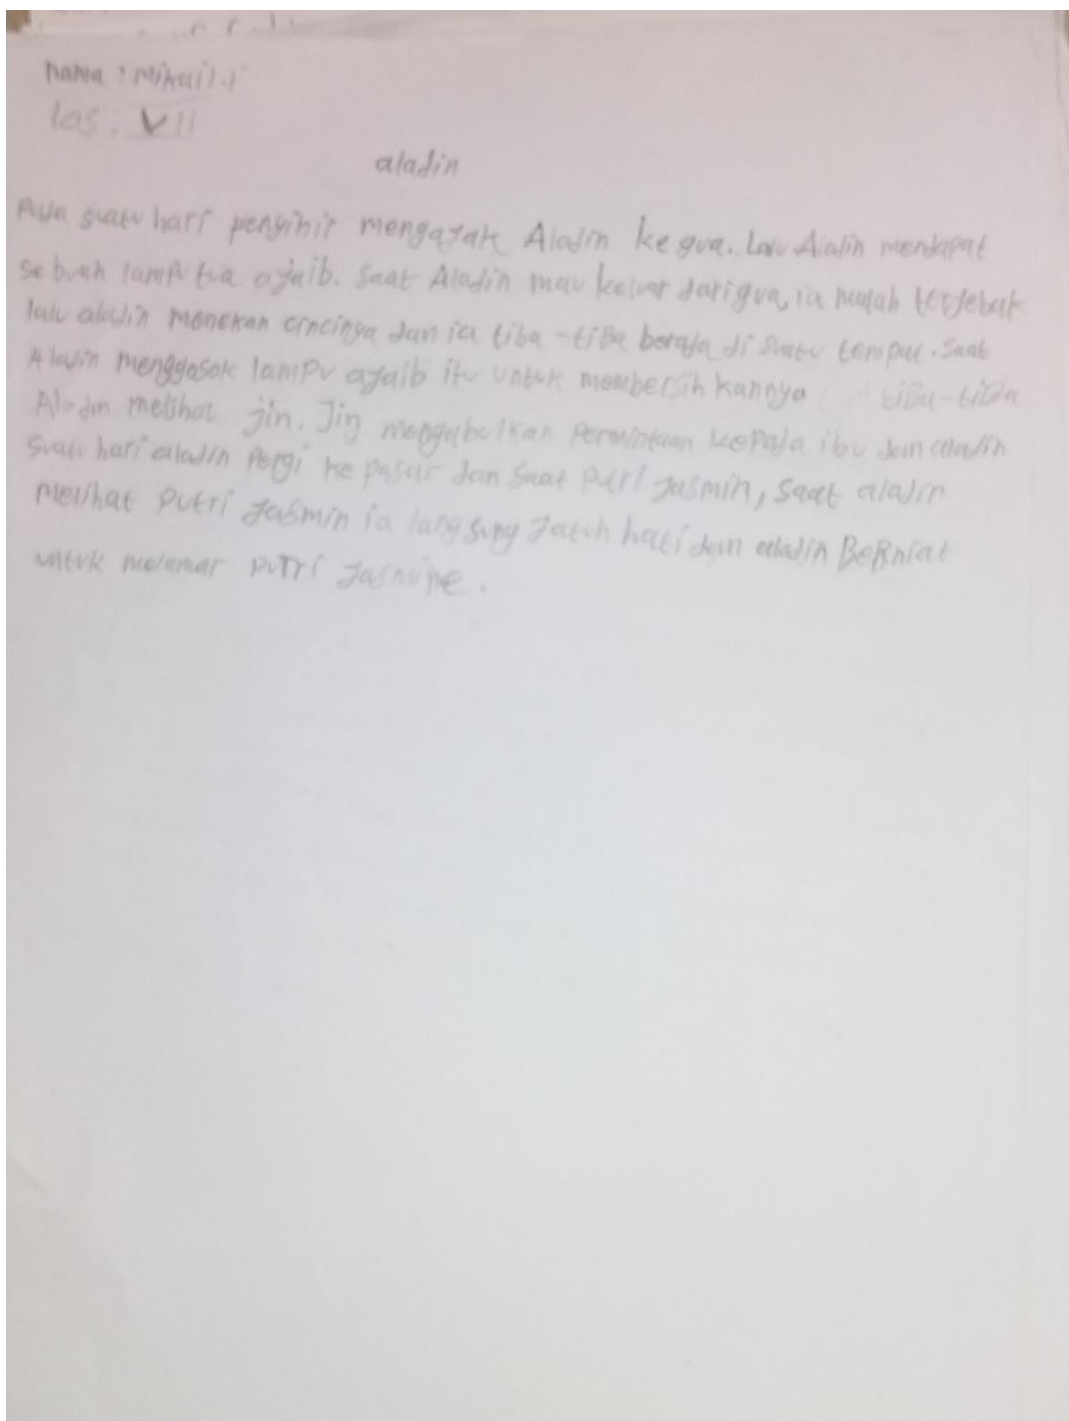 nama : Mikail.i
las : VII
aladin
Pada suatu hari penyihir mengajak Aladin ke gua. Lalu Aladin mendapat
sebuah lampu tua ajaib. Saat Aladin mau keluar dari gua, ia malah terjebak
lalu aladin menekan cincinya dan ia tiba-tiba berada di suatu tempat. Saat
Aladin menggosok lampu ajaib itu untuk membersihkannya tiba-tiba
Aladin melihat jin. Jin mengabulkan Permintaan kepada ibu dan aladin
Suatu hari aladin Pergi ke pasar dan saat putri jasmin, saat aladin
melihat putri jasmin ia langsung jatuh hati dan aladin BeRniat
untuk melamar puTri jasmine.